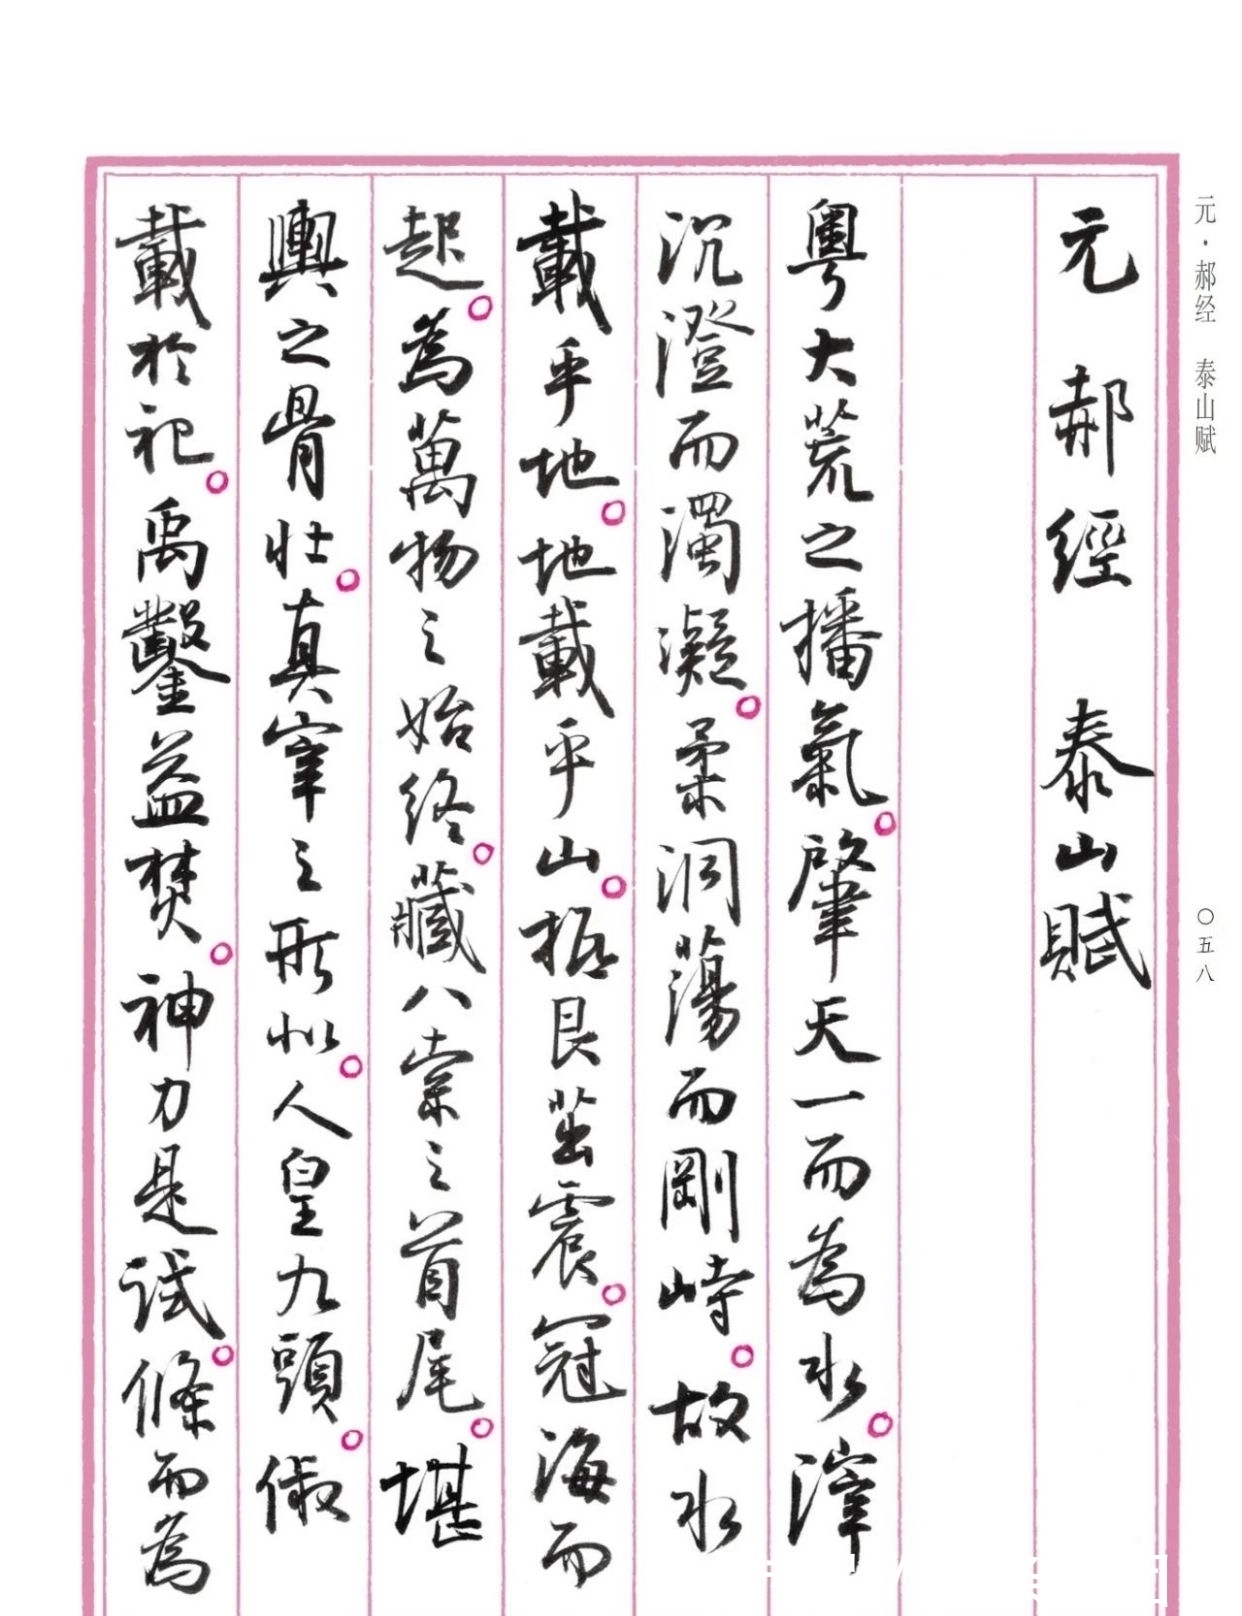 元·郝经 泰山赋
〇五八
元 郝經 泰山賦
粵大荒之播氣。肇天一而為水。滓
沉澄而濁凝。柔洞蕩而剛峙。故水
載乎地。地載乎山。根艮茁震。冠海而
起。為萬物之始終。藏八紘之首尾。堪
輿之骨壯。真宰之形似。人皇九頭。俶
載於祀。禹鑿益焚。神力是試。條而為